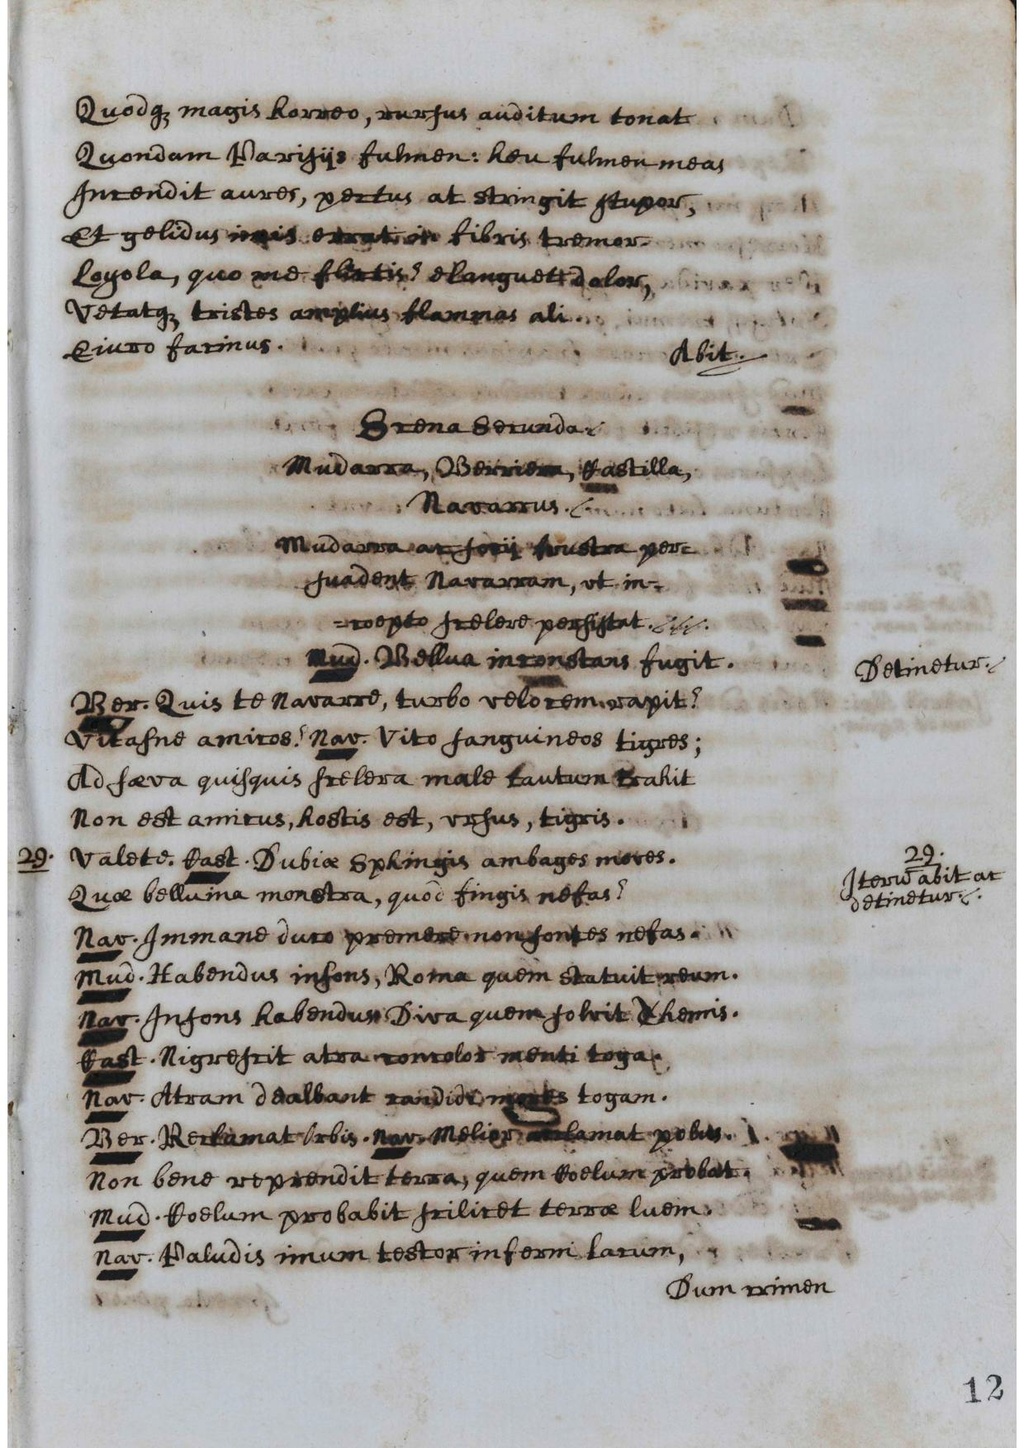 Quodq; magis horreo, rursus auditum tonat
Quondam Parisijs fulmen: heu fulmen meas
Incendit aures, pectus at stringit stupor,
Et gelidus imis errat in fibris tremor.
Loyola, quo me flectis? elanguet dolor,
Vetatq; tristes amplius flammas ali.
Eiuro facinus.
Abit.
Scena Secunda.
Mudarra, Verriera, Castilla,
Navarrus.
Mudarra ac socij frustra per=
suadent Navarram, vt in=
=coepto scelere persistat.
Mud. Bellua inconstans fugit.
Detinetur.
Ver. Quis te Navarre, turbo velocem rapit?
Vitasne amicos? Nav. Vito sanguineos tigres;
Ad sæva quisquis scelera male cautum trahit
Non est amicus, hostis est, vrsus, tigris.
29. Valete. Cast. Dubiæ Sphingis ambages moves.
29.
Iterū abit ac
detinetur.
Quæ belluina monstra, quod fingis nefas?
Nav. Immane duco premere non sontes nefas.
Mud. Habendus insons, Roma quem statuit reum.
Nav. Insons habendus Diva quem solvit Themis.
Cast. Nigrescit atra concolor menti toga.
Nav. Atram dealbant candidi mores togam.
Ver. Reclamat Orbis. Nav. Melior acclamat polus.
Non bene reprendit terra, quem Coelum probat.
Mud. Coelum probabit scilicet terræ luem.
Nav. Paludis imum testor inferni lacum,
Dum crimen
12